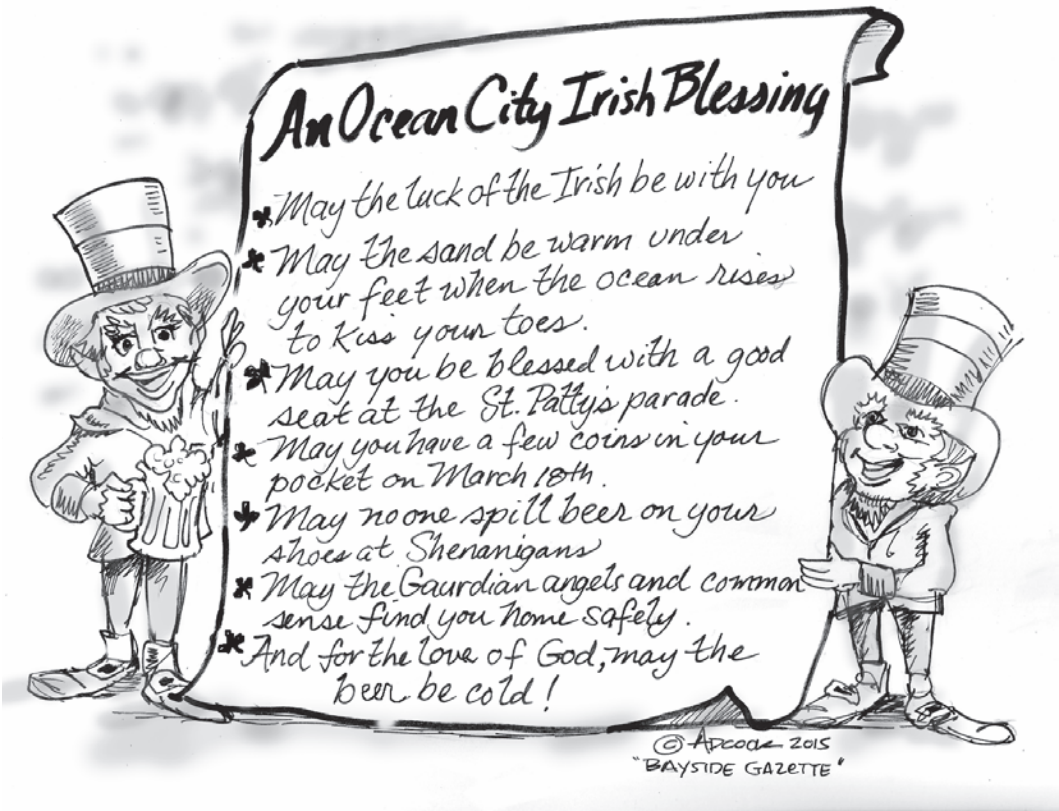 An Ocean City Irish Blessing
May the luck of the Irish be with you
May the sand be warm under
your feet when the ocean rises
to Kiss your toes.
May you be blessed with a good
seat at the St. Patty's parade.
May you have a few coins in your
pocket on March 18th.
May no one spill beer on your
shoes at Shenanigans
May the Gaurdian angels and common
sense find you home safely.
And for the love of God, may the
beer be cold!
© Adcock 2015
"BAYSIDE GAZETTE"